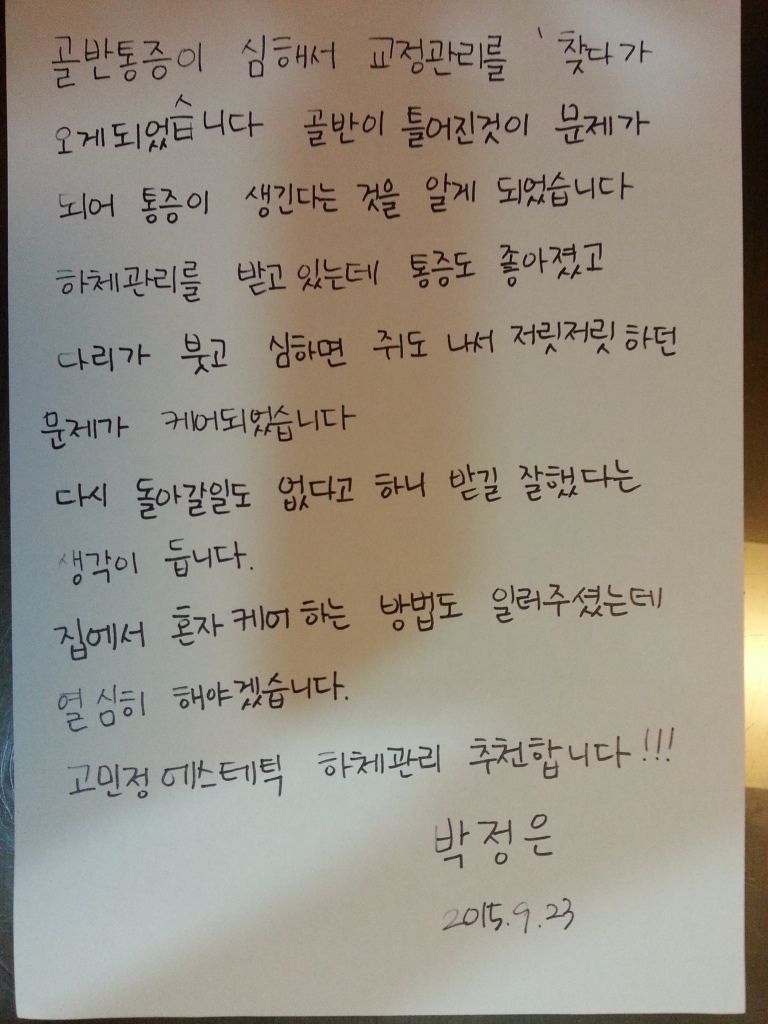 골반통증이 심해서 교정관리를 찾다가
오게되었습니다 골반이 틀어진것이 문제가
되어 통증이 생긴다는 것을 알게 되었습니다
하체관리를 받고있는데 통증도 좋아졌고
다리가 붓고 심하면 쥐도 나서 저릿저릿하던
문제가 케어되었습니다
다시 돌아갈일도 없다고 하니 받길 잘했다는
생각이 듭니다.
집에서 혼자케어하는 방법도 일러주셨는데
열심히 해야겠습니다.
고민정에스테틱 하체관리 추천합니다!!!
박정은
2015.9.23